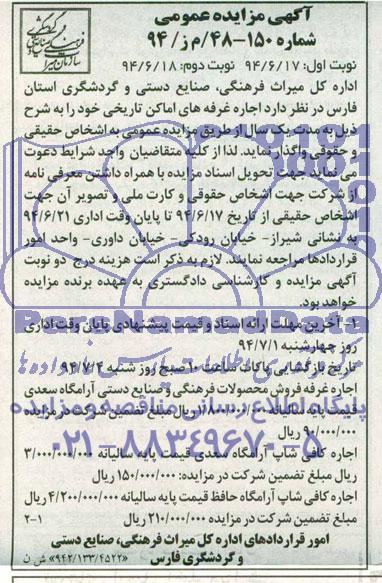 آگهی مزایده عمومی
شماره ۱۵۰-۴۸/م ز/ ۹۴
نوبت اول: ۹۴/۶/۱۷ نوبت دوم: ۹۴/۶/۱۸
اداره کل میراث فرهنگی، صنایع دستی و گردشگری استان
فارس در نظر دارد اجاره غرفه های اماکن تاریخی خود را به شرح
ذیل به مدت یک سال از طریق مزایده عمومی به اشخاص حقیقی
و حقوقی واگذار نماید. لذا از کلیه متقاضیان واجد شرایط دعوت
می نماید جهت تحویل اسناد مزایده با همراه داشتن معرفی نامه
از شرکت جهت اشخاص حقوقی و کارت ملی و تصویر آن جهت
اشخاص حقیقی از تاریخ ۹۴/۶/۱۷ تا پایان وقت اداری ۹۴/۶/۲۱
به نشانی شیراز- خیابان رودکی- خیابان داوری- واحد امور
قراردادها مراجعه نمایند. لازم به ذکر است هزینه درج دو نوبت
آگهی مزایده و کارشناسی دادگستری به عهده برنده مزایده
خواهد بود.
۱- آخرین مهلت ارائه اسناد و قیمت پیشنهادی پایان وقت اداری
روز چهارشنبه ۹۴/۷/۱
تاریخ بازگشایی پاکات ساعت ۱۰ صبح روز شنبه ۹۴/۷/۴
اجاره غرفه فروش محصولات فرهنگی و صنایع دستی آرامگاه سعدی
قیمت پایه سالیانه ۱/۸۰۰/۰۰۰/۰۰۰ ریال مبلغ تضمین شرکت در مزایده
۹۰/۰۰۰/۰۰۰ ریال
اجاره کافی شاپ آرامگاه سعدی قیمت پایه سالیانه ۳/۰۰۰/۰۰۰/۰۰۰
ریال مبلغ تضمین شرکت در مزایده: ۱۵۰/۰۰۰/۰۰۰ ریال
اجاره کافی شاپ آرامگاه حافظ قیمت پایه سالیانه ۴/۲۰۰/۰۰۰/۰۰۰ ریال
مبلغ تضمین شرکت در مزایده ۲۱۰/۰۰۰/۰۰۰ ریال ۲-۱
امور قراردادهای اداره کل میراث فرهنگی، صنایع دستی
و گردشگری فارس «۹۴۲/۱۳۳/۴۵۲۲» ش ن
ParsNamadData
پایگاه اطلاع رسانی مناقصه و مزایده
۰۲۱-۸۸۳۴۹۶۷۰-۵